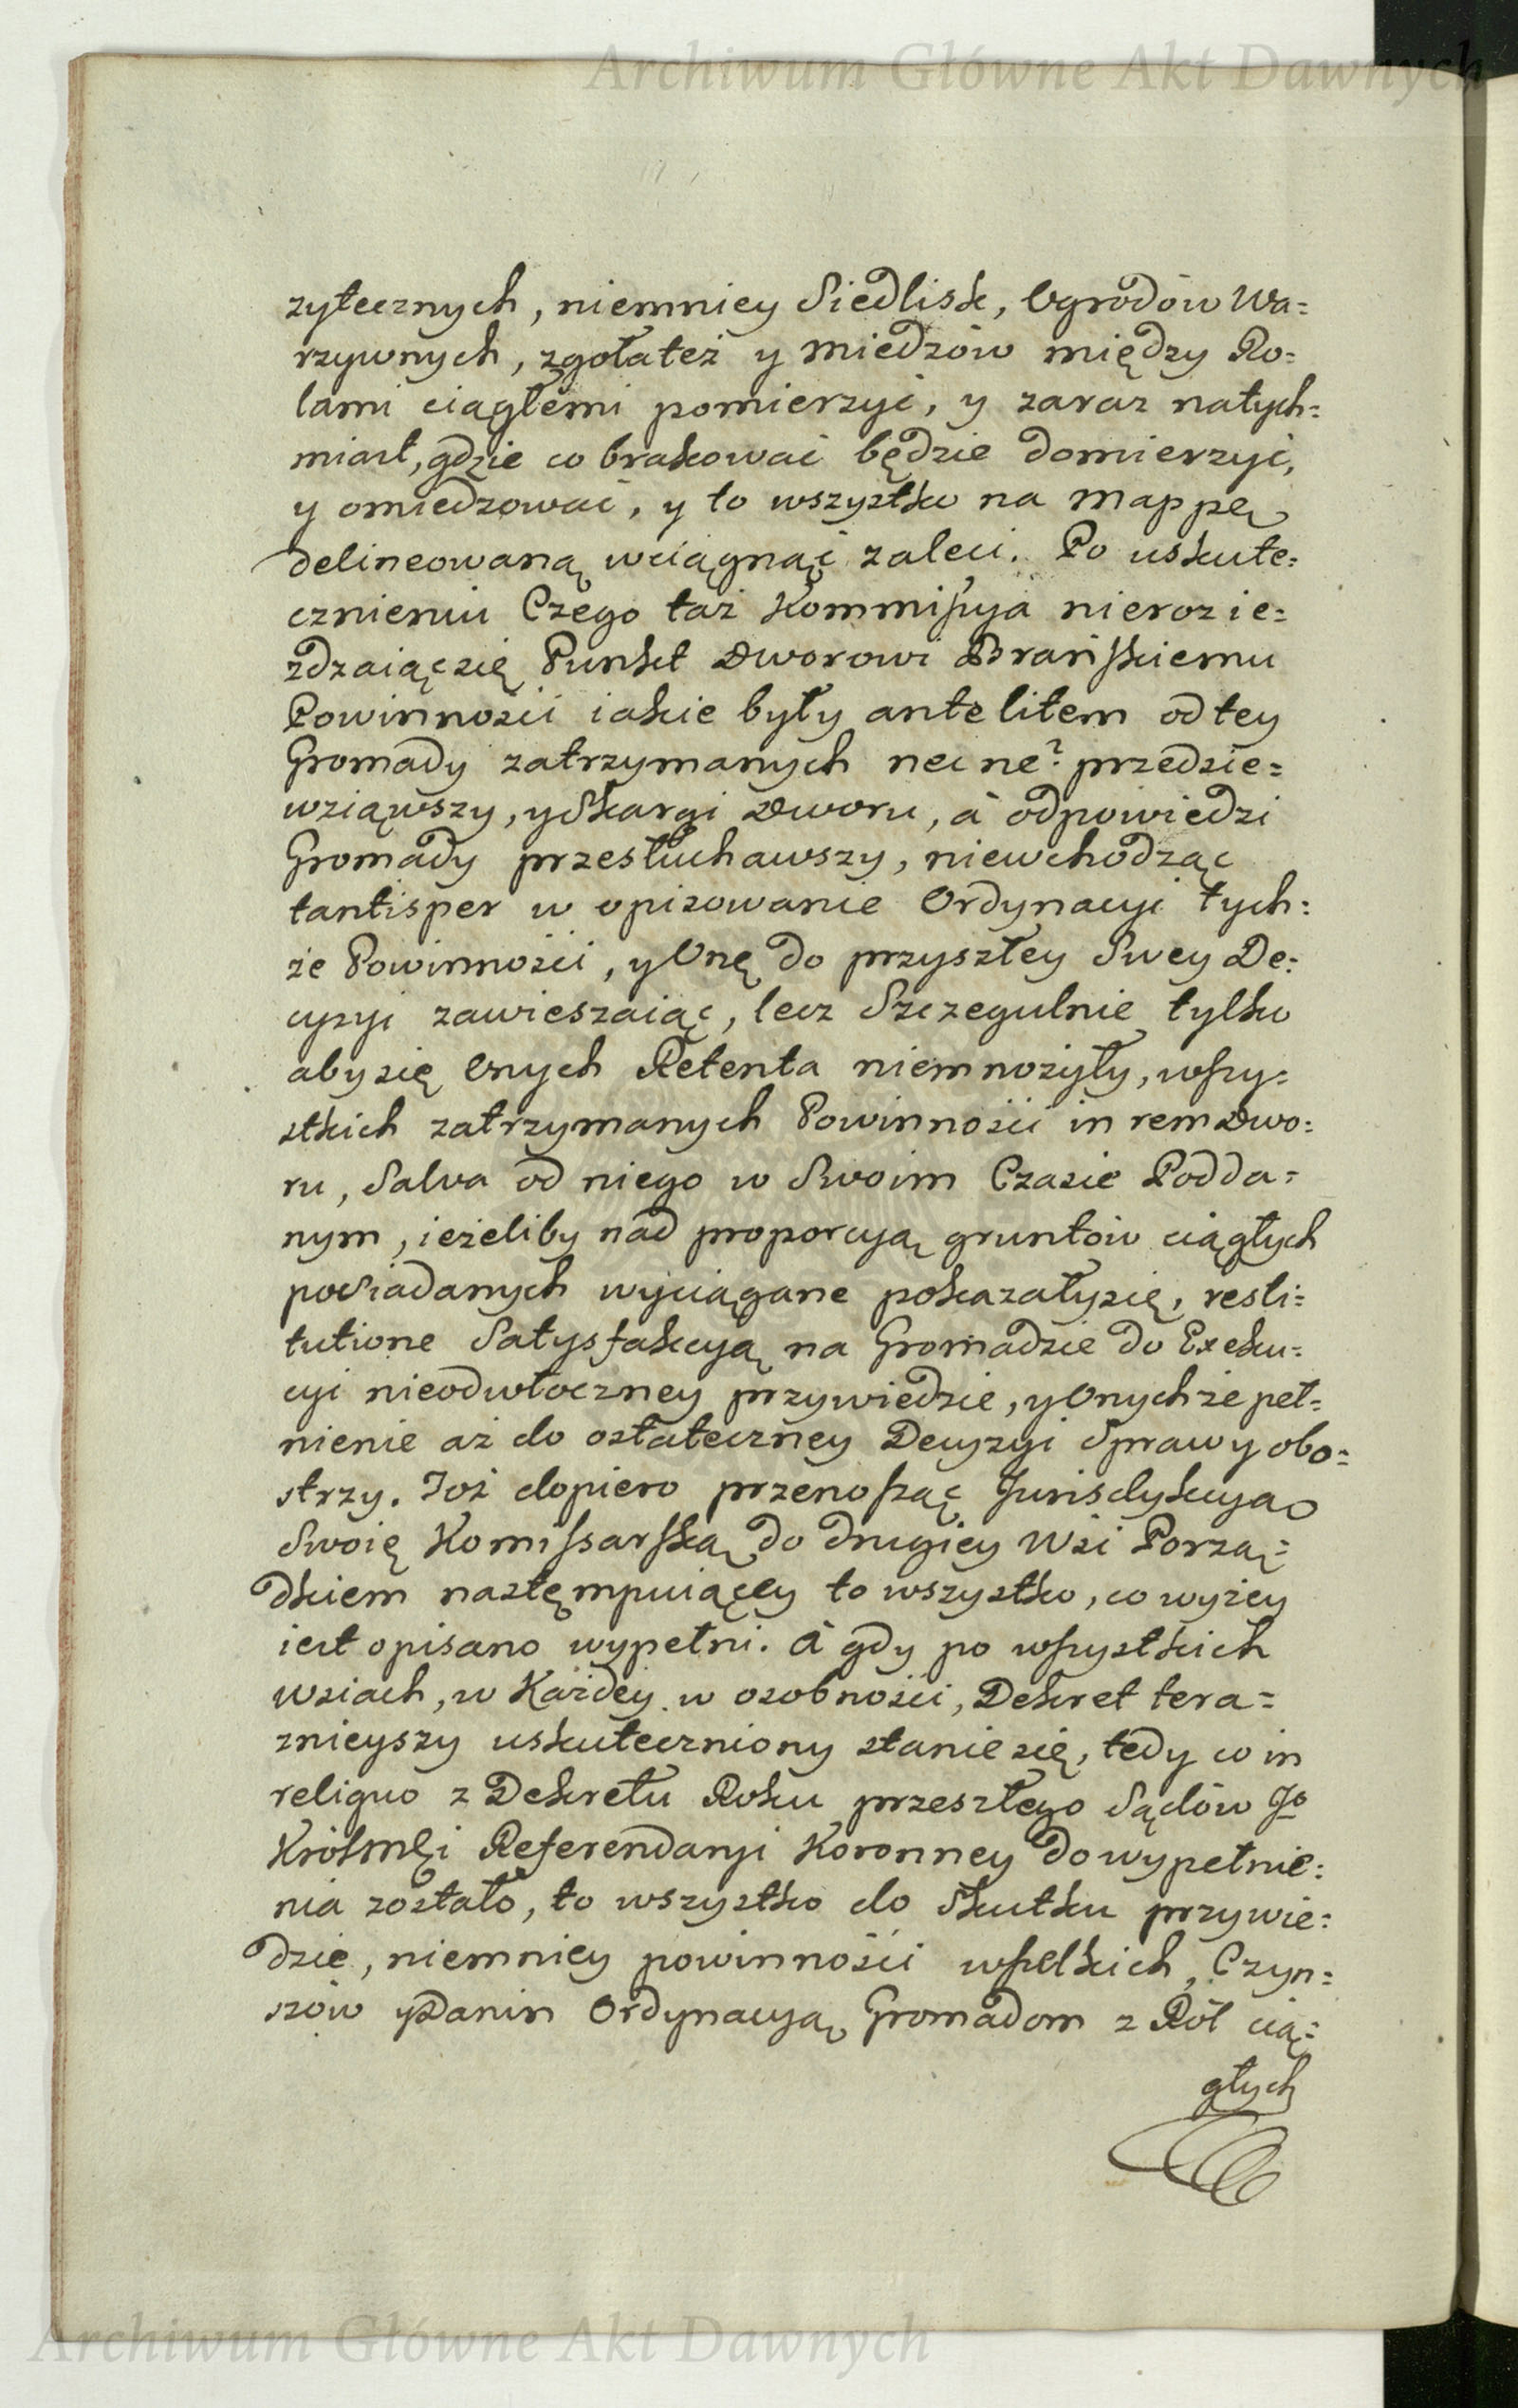 Archiwum Główne Akt Dawnych
zytecznych, niemniey Siedlisk, Ogrodów Wa=
rzywnych, zgoła też y miedzów między Ro=
lami ciągłemi pomierzyć, y zaraz natych=
miast, gdzie co brakować będzie domierzyć,
y omiedzować, y to wszystko na mappę
delineowaną wciągnąć zaleci. Po uskute=
cznieniu Czego taż Kommissya nierozie=
zdzaiąc się Punkt Dworowi Brańskiemu
Powinności iakie były ante litem od tey
Gromady zatrzymanych nec ne? przedsie=
wziąwszy, y Skargi Dworu, á odpowiedzi
Gromady przesłuchawszy, niewchodząc
tantisper w opisowanie Ordynacyi tych=
że Powinności, y Onę do przyszłey Swey De=
cyzyi zawieszaiąc, lecz Szczegulnie tylko
aby się onych Retenta niemnożyły, wszy=
stkich zatrzymanych Powinności in rem Dwo=
ru, Salva od niego w Swoim Czasie Podda=
nym, ieżeliby nad proporcyą gruntów ciągłych
posiadanych wyciągane pokazały się, resti=
tutione Satysfakcyą na Gromadzie do Exeku=
cyi nieodwłoczney przywiedzie, y Onychże peł=
nienie aż do ostateczney Decyzyi Sprawy obo=
strzy. Toż dopiero przenosząc Jurisdykcyą
Swoię Komissarską do drugiey Wsi Porzą=
dkiem nastęmpuiącey to wszystko, co wyżey
iest opisano wypełni. á gdy po wszystkich
wsiach, w Każdey w osobności, Dekret tera=
znieyszy uskuteczniony stanie się, tedy co in
reliquo z Dekretu Roku przeszłego Sądów Jo
KrólMci Referendaryi Koronney do wypełnie=
nia zostało, to wszystko do Skutku przywie=
dzie, niemniey powinności wszelkich, Czyn=
szów y Danin Ordynacyą Gromadom z Ról cią=
głych
Archiwum Główne Akt Dawnych